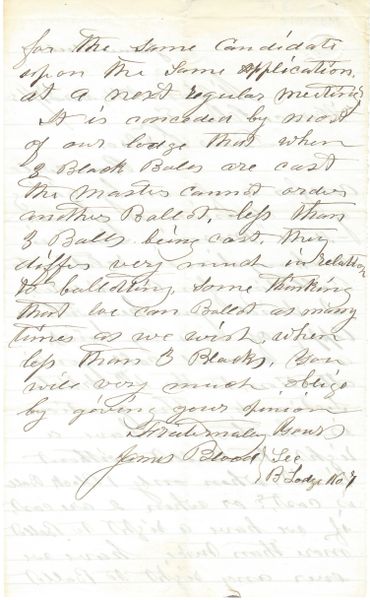 for the same candidate
upon the same application,
at a next regular meeting
It is conceded by most
of our lodge that when
3 Black Balls are cast
the master cannot order
another Ballot, less than
3 Balls being cast, they
differ very much in relation
to balloting, some thinking
that we can Ballot as many
times as we wish, when
less than 3 Blacks, You
will very much oblige
by giving your opinion
Fraternaly Yours
James Blood } Sec
B Lodge No 7